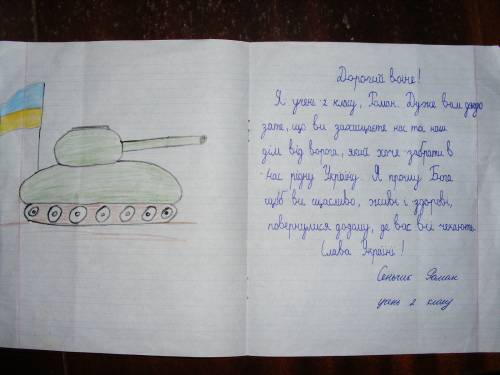 Дорогий воїне!
Я учень 2 класу, Роман. Дуже вам
зате, що ви захищаєте нас та наш
дім від ворога, який хоче забрати в
нас рідну Україну. Я прошу Бога
щоб ви щасливо, живі і здорові,
повернулися додому, де вас всі чекають.
Слава Україні!
Сеньчик Роман
учень 2 класу